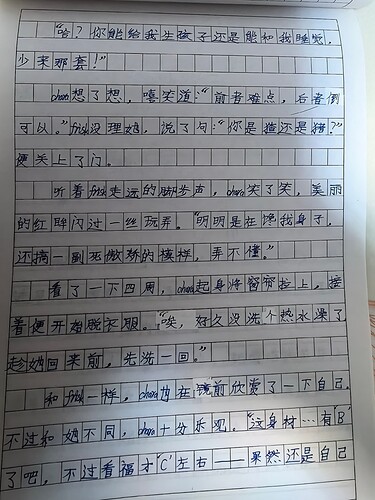 “哈？你能给我生孩子还是能和我睡觉，
少来那套！”
chara想了想，嘻笑道：“前者难点，后者倒
可以。”frisk没理她，说了句：“你是猹还是猪？”
便关上了门。
听着frisk走远的脚步声，chara笑了笑，美丽
的红眸闪过一丝玩弄。“明明是在馋我身子，
还搞一副死傲娇的模样，弄不懂。”
看了一下四周，chara起身将窗帘拉上，接
着便开始脱衣服。“唉，好久没洗个热水澡了
趁她回来前，先洗一回。”
和frisk一样，chara也在镜前欣赏了一下自己。
不过和她不同，chara十分乐观，“这身材…有‘B’
了吧，不过看福才‘C’左右——果然还是自己